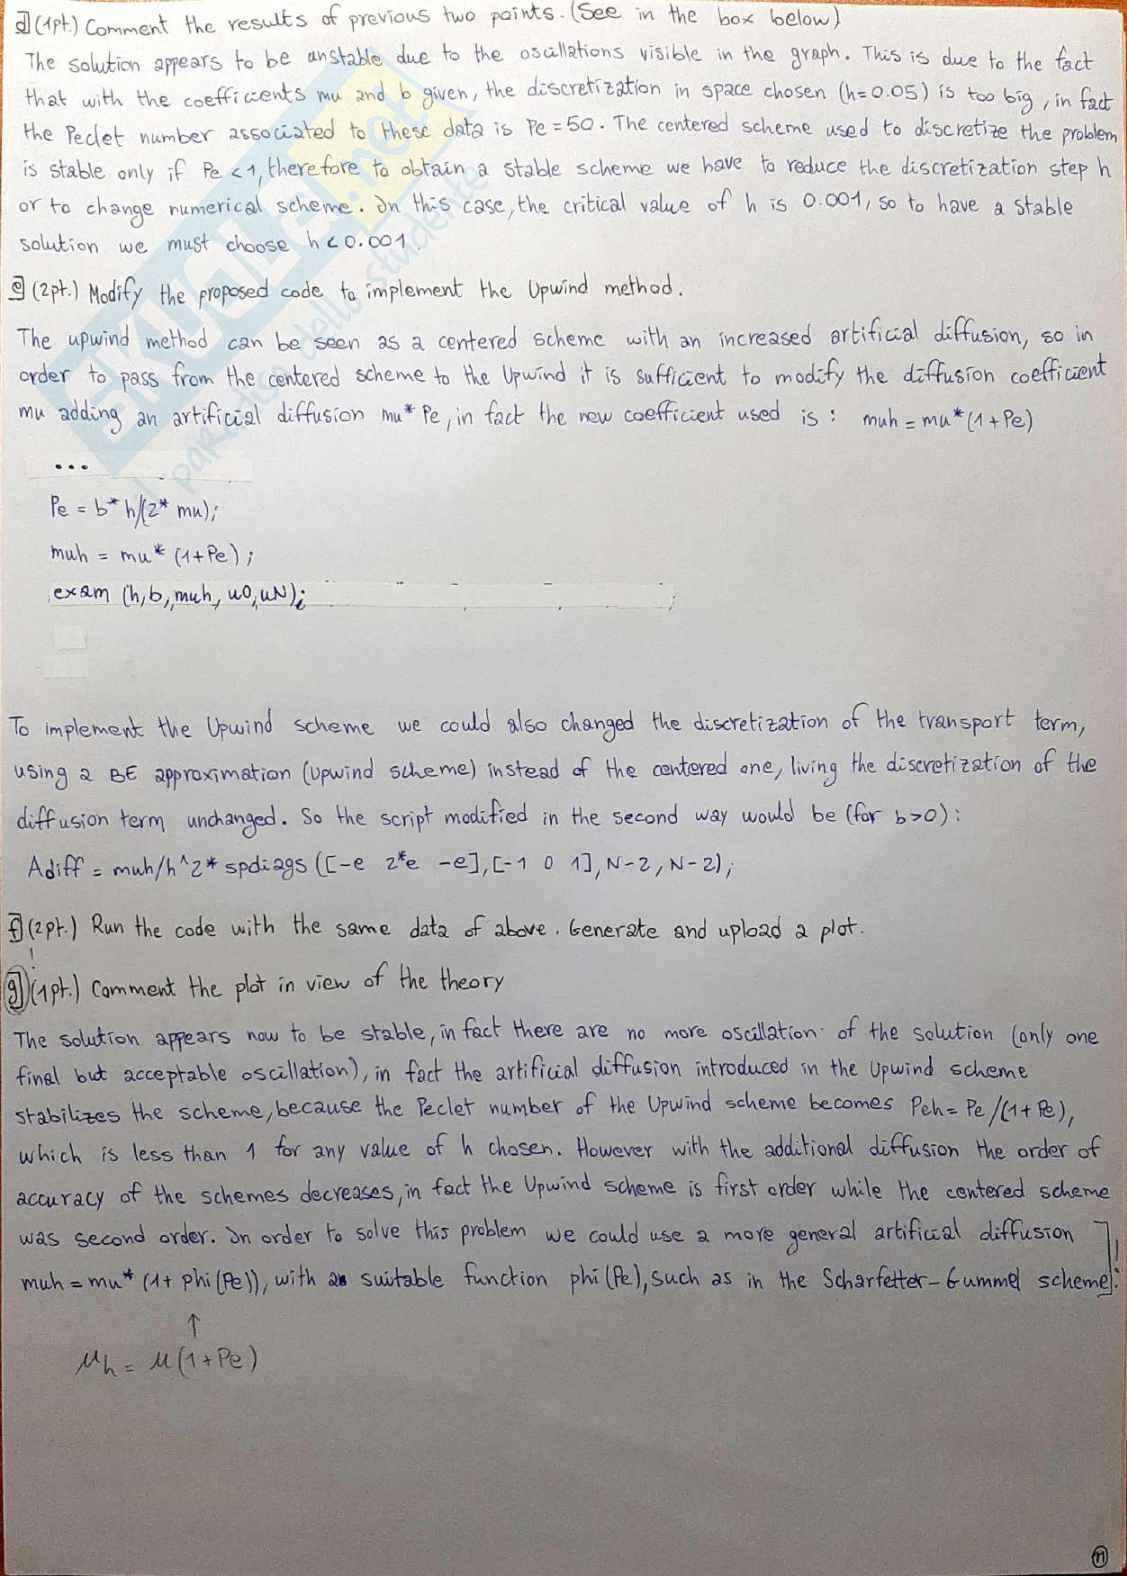 d (1pt.) Comment the results of previous two points. (See in the box below)
The solution appears to be unstable due to the oscillations visible in the graph. This is due to the fact
that with the coefficients mu and b given, the discretization in space chosen (h=0.05) is too big, in fact
the Peclet number associated to these data is Pe=50. The centered scheme used to discretize the problem
is stable only if Pe<1, therefore to obtain a stable scheme we have to reduce the discretization step h
or to change numerical scheme. In this case, the critical value of h is 0.001, so to have a stable
solution we must choose h<0.001.
e (2pt.) Modify the proposed code to implement the Upwind method.
The upwind method can be seen as a centered scheme with an increased artificial diffusion, so in
order to pass from the centered scheme to the Upwind it is sufficient to modify the diffusion coefficient
mu adding an artificial diffusion mu*Pe, in fact the new coefficient used is: muh=mu*(1+Pe)
...
Pe = b*h/(2*mu);
muh = mu*(1+Pe);
exam (h,b,muh,u0,uN);
To implement the Upwind scheme we could also changed the discretization of the transport term,
using a BE approximation (upwind scheme) instead of the centered one, living the discretization of the
diffusion term unchanged. So the script modified in the second way would be (for b>0):
Adiff = muh/h^2*spdiags([-e 2*e -e],[-1 0 1],N-2,N-2);
f (2pt.) Run the code with the same data of above. Generate and upload a plot.
g (1pt.) Comment the plot in view of the theory
The solution appears now to be stable, in fact there are no more oscillation of the solution (only one
final but acceptable oscillation), in fact the artificial diffusion introduced in the Upwind scheme
stabilizes the scheme, because the Peclet number of the Upwind scheme becomes Peh=Pe/(1+Pe),
which is less than 1 for any value of h chosen. However with the additional diffusion the order of
accuracy of the schemes decreases, in fact the Upwind scheme is first order while the centered scheme
was second order. In order to solve this problem we could use a more general artificial diffusion
muh=mu*(1+phi(Pe)), with a suitable function phi(Pe), such as in the Scharfetter-Gummel scheme. !
↑
μh = μ(1+Pe)
SKUOLA.net
il paradiso dello studente